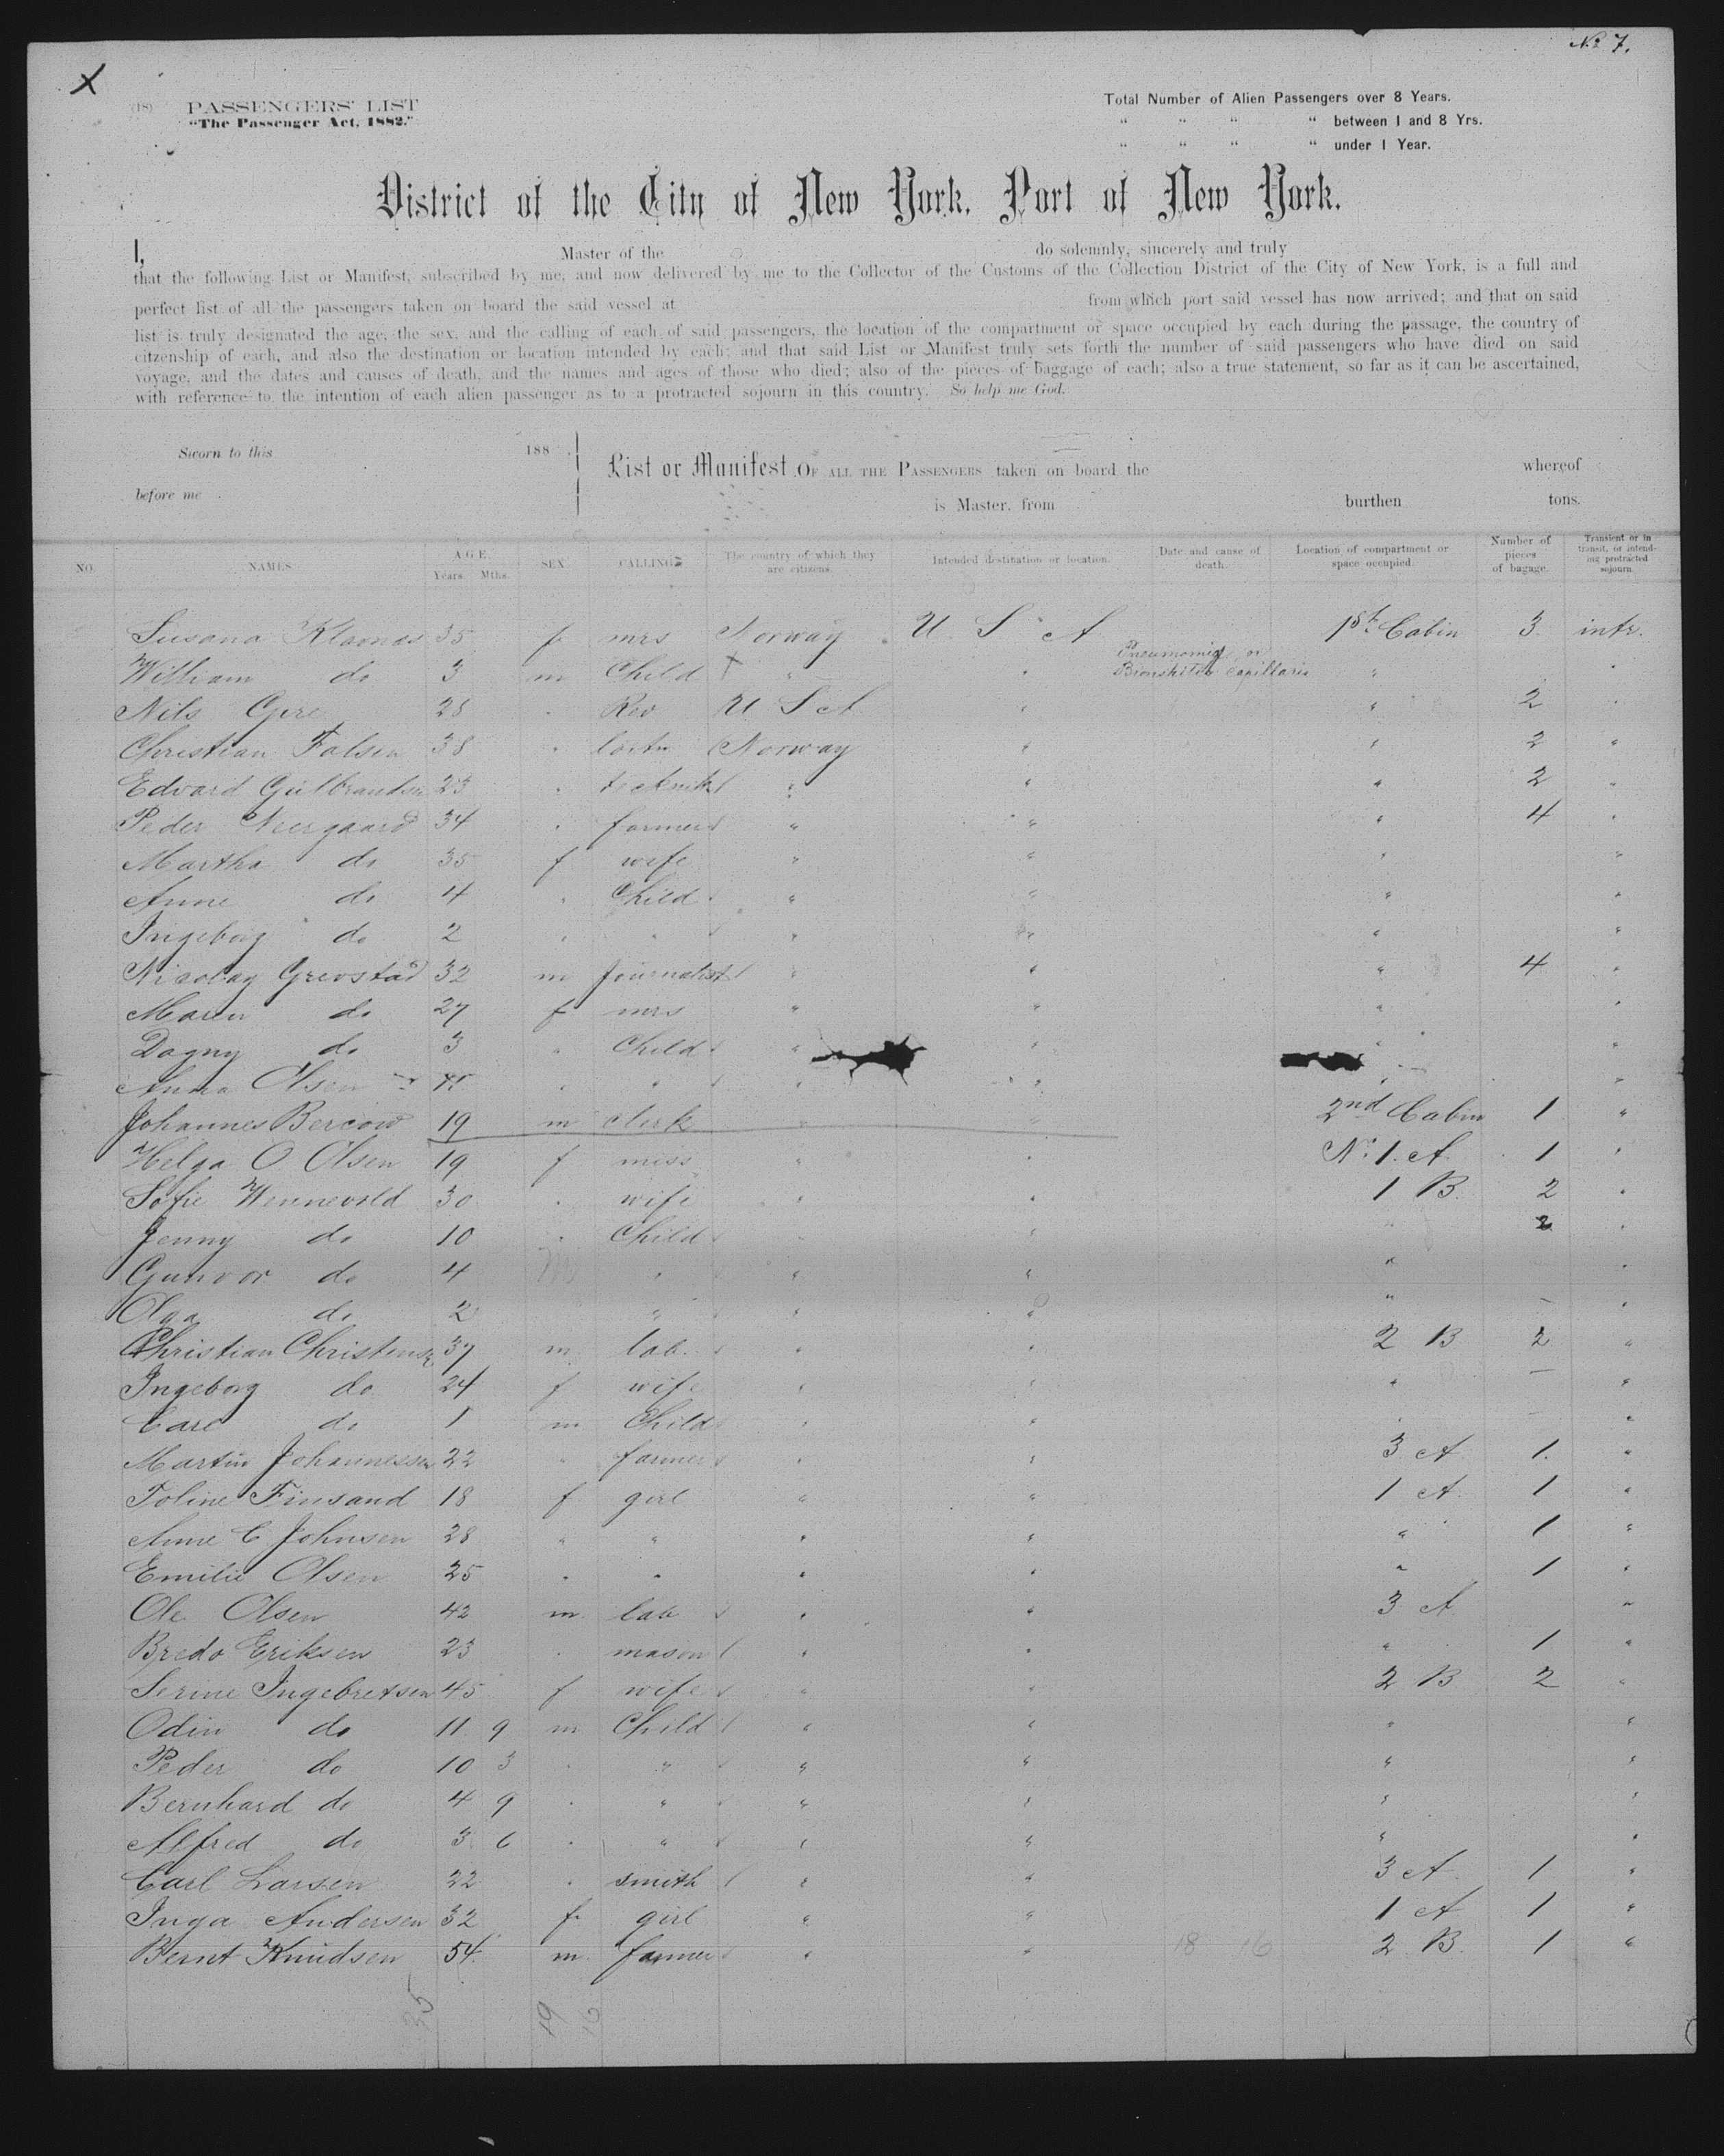 No 7.
X
(18) PASSENGERS' LIST
"The Passenger Act, 1882."
Total Number of Alien Passengers over 8 Years.
" " " " between 1 and 8 Yrs.
" " " " under 1 Year.
District of the City of New York, Port of New York.
I, Master of the do solemnly, sincerely and truly
that the following List or Manifest, subscribed by me, and now delivered by me to the Collector of the Customs of the Collection District of the City of New York, is a full and
perfect list of all the passengers taken on board the said vessel at from which port said vessel has now arrived; and that on said
list is truly designated the age, the sex, and the calling of each of said passengers, the location of the compartment or space occupied by each during the passage, the country of
citzenship of each, and also the destination or location intended by each; and that said List or Manifest truly sets forth the number of said passengers who have died on said
voyage, and the dates and causes of death, and the names and ages of those who died; also of the pieces of baggage of each; also a true statement, so far as it can be ascertained,
with reference to the intention of each alien passenger as to a protracted sojourn in this country. So help me God.
Sworn to this 188 .
before me
List or Manifest OF ALL THE PASSENGERS taken on board the whereof
is Master, from burthen tons.
NO. NAMES AGE. Years. Mths. SEX. CALLING The country of which they are citizens. Intended destination or location. Date and cause of death. Location of compartment or space occupied. Number of pieces of bagage. Transient or in transit, or intending protracted sojourn.
Susana 35 f mrs Norway U S A 1st Cabin 3 intr.
William do 3 m Child † " " Pneumonia or Bronkitis Capillaris " "
Nils 28 " Rev U S A " " 2 "
Christian Falsen 38 " Norway " " 2 "
Edvard Gulbrandsen 23 " " " " 2 "
Peder Neergaard 34 " farmer " " " 4 "
Martha do 35 f wife " " " "
Anne do 4 " Child " " " "
Ingeborg do 2 " " " " " "
Nicolay Grevstad 32 m Journalist " " " 4 "
Maren do 27 f mrs " " " "
Dagny do 3 " Child " " " "
Anna Olsen " " " " " "
Johannes Bercow 19 m clerk " " 2nd Cabin 1 "
Helga O Olsen 19 f miss " " No 1. A 1 "
Sofie Wennevold 30 " wife " " 1 B. 2 "
Jenny do 10 " Child " " " 2 "
Gunvor do 4 " " " " "
Olga do 2 " " " " - "
Christian Christensen 37 m lab. " " 2 B 2 "
Ingeborg do 24 f wife " " " - "
Carl do 1 m Child " " " - "
Martin Johannessen 22 " farmer " " 3 A 1. "
Toline Finsand 18 f girl " " 1 A 1 "
Anne C Johnsen 28 " " " " " 1 "
Emilie Olsen 25 " " " " " 1 "
Ole Olsen 42 m lab " " 3 A "
Bredo Eriksen 23 " mason " " " 1 "
Serine Ingebretsen 45 f wife " " 2 B 2 "
Odin do 11 9 m Child " " " "
Peder do 10 3 " " " " " "
Bernhard do 4 9 " " " " " "
Alfred do 3 6 " " " " " "
Carl Larsen 22 " smith " " 3 A 1 "
Inga Andersen 32 f girl " " 1 A 1 "
Bernt Knudsen 54 m farmer " " 18 16 2 B. 1 "
35 19 16